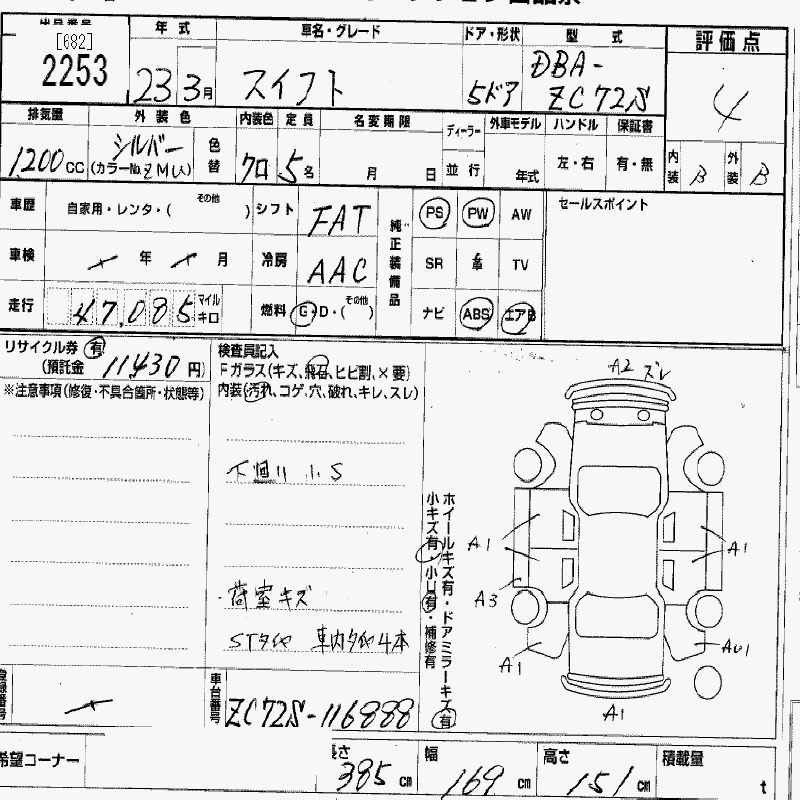 [682]
2253
年式
23 3月
車名・グレード
スイフト
ドア・形状
5ドア
型式
DBA-
ZC72S
評価点
4
排気量
1200 CC
外装色
シルバー
(カラーNo. ZMU)
色替
内装色
クロ
定員
5名
名変期限
月 日
ディーラー
並行
外車モデル
年式
ハンドル
左・右
保証書
有・無
内装 B
外装 B
車歴
自家用・レンタ・(その他 )
シフト
FAT
車検
年 月
冷房
AAC
走行
47,085
マイル
キロ
燃料
G・D・(その他 )
純正装備品
PS PW AW
SR 革 TV
ナビ ABS エアB
セールスポイント
リサイクル券 有
(預託金 11430 円)
※注意事項(修復・不具合箇所・状態等)
検査員記入
Fガラス(キズ、飛石、ヒビ割、×要)
内装(汚れ、コゲ、穴、破れ、キレ、スレ)
下廻り 小S
荷室キズ
STタイヤ 車内タイヤ4本
ホイールキズ有・ドアミラーキズ有
小キズ有・小U有・補修有
A2 ズレ
A1
A1
A3
A1
AU1
A1
登録番号
車台番号
ZC72S-116888
希望コーナー
長さ
385 cm
幅
169 cm
高さ
151 cm
積載量
t